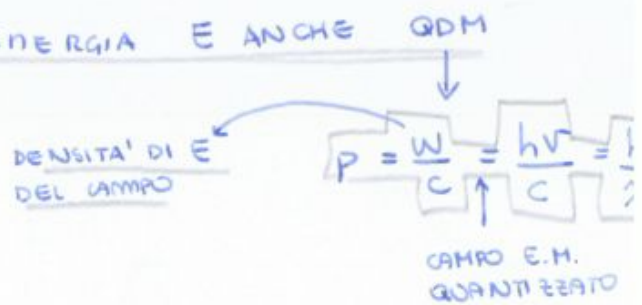 NERGIA E ANCHE QDM
DENSITA' DI E
DEL CAMPO
P = W/C = hν/C =
CAMPO E.M.
QUANTIZZATO